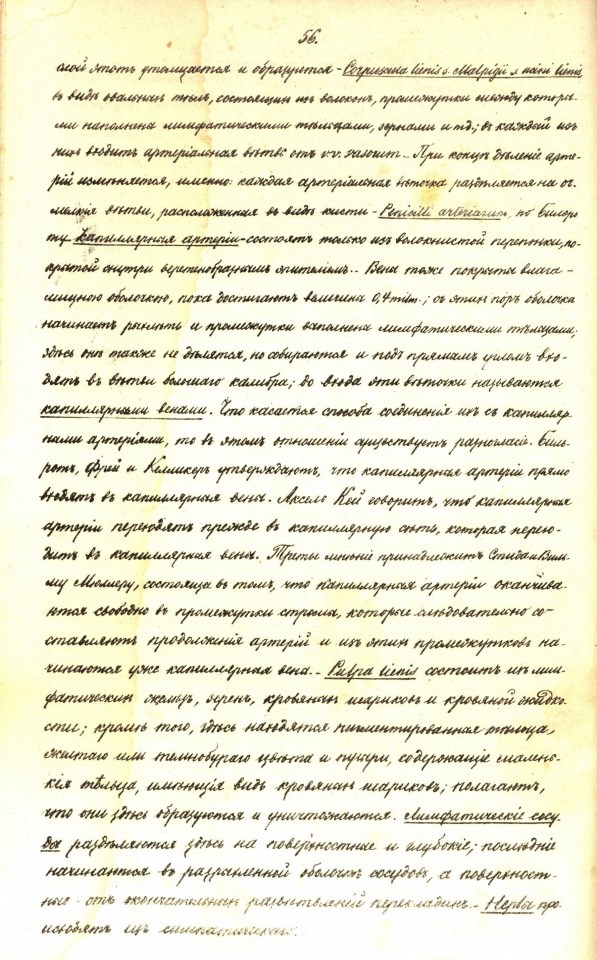 56.
слой этотъ утолщается и образуется – Corpuscula lienis s. Malpigii s. acini lienis,
въ видѣ овальныхъ тѣлъ, состоящихъ изъ волоконъ, промежутки между которы-
ми наполнены лимфатическими тѣльцами, зернами и тд; въ каждый изъ
нихъ входитъ артеріальная вѣтвь отъ v.v. – При концѣ дѣленіе арте-
рій измѣняется, именно: каждая артеріальная вѣточка раздѣляется на
мелкія вѣтви, расположенныя въ видѣ кисти – Penicilli arteriarum, по Бильро-
ту капиллярныя артеріи – состоятъ только изъ волокнистой перепонки, по-
крытой снутри веретенобразнымъ эпителіемъ. – Вены тоже покрыты влага-
лищною оболочкою, пока достигаютъ величины 0,4 milm.; съ этихъ поръ оболочка
начинаетъ рыхлѣть и промежутки наполнены лимфатическими тѣльцами;
здѣсь онѣ также не дѣлятся, но собираются и подъ прямымъ угломъ вхо-
дятъ въ вѣтви большаго калибра; до входа эти вѣточки называются
капиллярными венами. Что касается способа соединенія ихъ съ капилляр-
ными артеріями, то въ этомъ отношеніи существуетъ разногласіе. Биль-
ротъ, Фрей и Келликеръ утверждаютъ, что капиллярныя артеріи прямо
входятъ въ капиллярныя вены. Аксель Кей говоритъ, что капиллярныя
артеріи переходятъ прежде въ капиллярную сѣть, которая перехо-
дитъ въ капиллярныя вены. Третье мнѣніе принадлежитъ Стида и Виль-
му Мюллеру, состоящее въ томъ, что капиллярныя артеріи оканчива-
ются свободно въ промежутки стромы, которые слѣдовательно со-
ставляютъ продолженія артерій и изъ этихъ промежутковъ на-
чинаются уже капиллярныя вены. – Pulpa lienis состоитъ изъ лим-
фатическихъ железъ, зеренъ, кровяныхъ шариковъ и кровяной жидко-
сти; кромѣ того, здѣсь находятся пигментированныя тѣльца,
желтаго или темнобураго цвѣта и пузыри, содержащіе малень-
кія тѣльца, имѣющія видъ кровяныхъ шариковъ; полагаютъ,
что они здѣсь образуются и уничтожаются. Лимфатическіе сосу-
ды раздѣляются здѣсь на поверхностные и глубокіе; послѣдніе
начинаются въ оболочкѣ сосудовъ, а поверхност-
ные – отъ окончательныхъ развѣтвленій перекладинъ. – Нервы про-
исходятъ изъ симпатическаго.